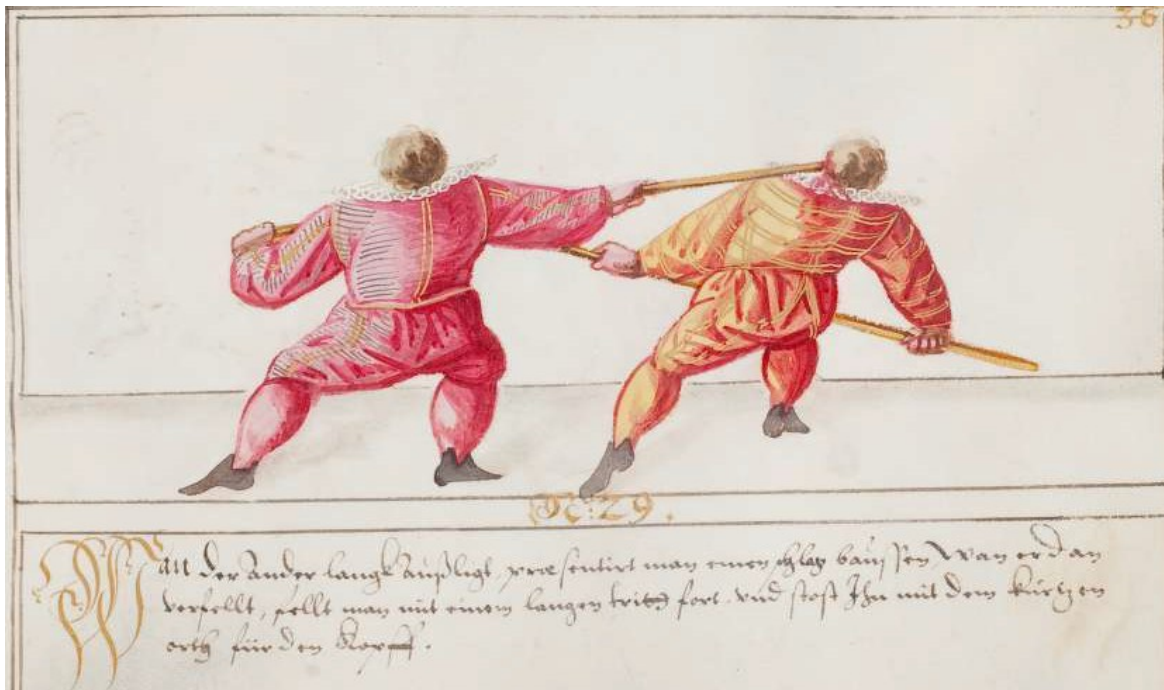 36
N: 29.
Wan der Ander langk Außligt, præsentirt man einen schlag baussen, Wan er dan
verfellt, fellt man mit einem langen tritt fort, vnd stost Ihn mit dem kurtzen
orth für den Kopff.